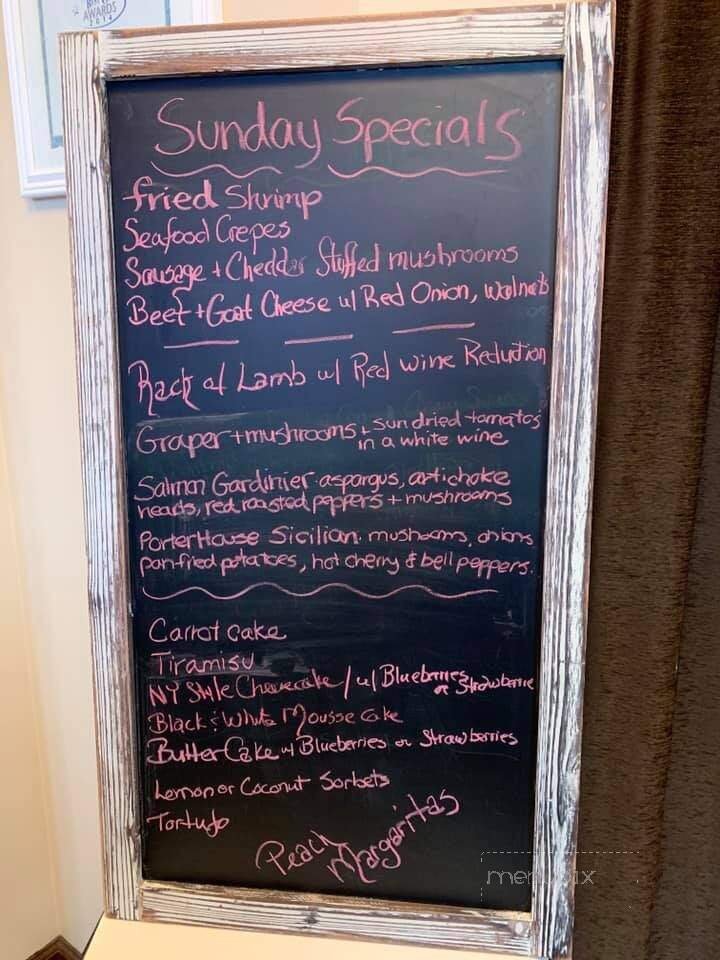 AWARDS
2014
Sunday Specials
fried Shrimp
Seafood Crepes
Sausage + Cheddar Stuffed mushrooms
Beet + Goat Cheese w/ Red Onion, Walnuts
Rack of Lamb w/ Red wine Reduction
Graper + mushrooms + sun dried tomatos
in a white wine
Salmon Gardinier: aspargus, artichoke
heads, red roasted peppers + mushrooms
PorterHouse Sicilian: mushrooms, onions
pan-fried potatoes, hot cherry & bell peppers.
Carrot Cake
Tiramisu
NY Style Cheesecake / w/ Blueberries
or Strawberrie
Black & White Mousse Cake
Butter Cake w/ Blueberries or Strawberries
Lemon or Coconut Sorbets
Tartufo
Peach
Margaritas